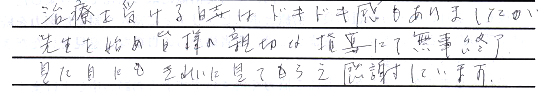 治療を受ける時はドキドキ感もありましたが
先生を始め皆様の親切な指導にて無事終了
見た目にもきれいに見てもらえ感謝しています。